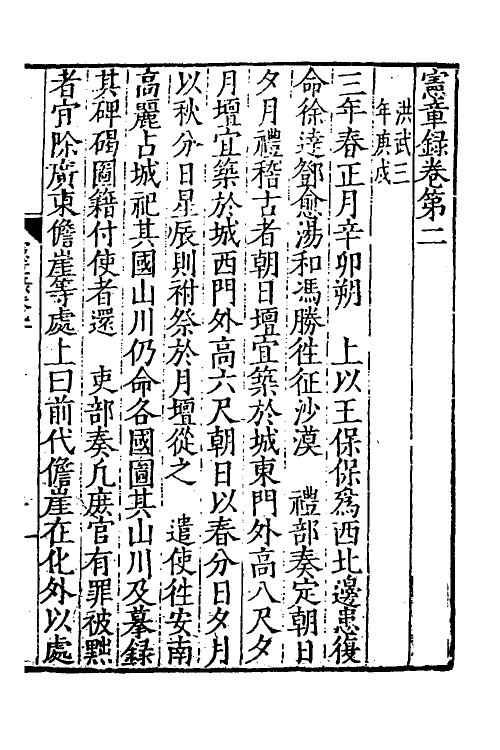 憲章録卷第二
洪武三
年庚戌
三年春正月辛卯朔　上以王保保爲西北邊患復
命徐逹鄧愈湯和馮勝徃征沙漠　禮部奏定朝日
夕月禮稽古者朝日壇宜築於城東門外高八尺夕
月壇宜築於城西門外高六尺朝日以春分日夕月
以秋分日星辰則祔祭於月壇從之　遣使徃安南
高麗占城祀其國山川仍命各國圖其山川及摹録
其碑碣圖籍付使者還　吏部奏凢庻官有罪被黜
者宜除廣東儋崖等處上曰前代儋崖在化外以處